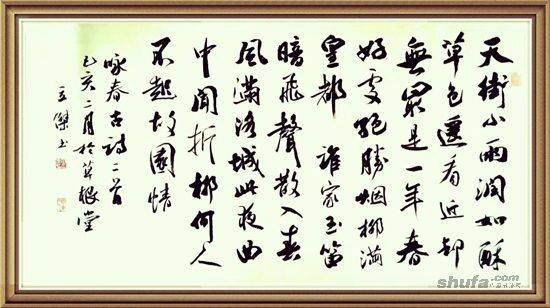 天街小雨潤如酥
草色遥看近却
無最是一年春
好處绝勝烟柳满
皇都 誰家玉笛
暗飛聲散入春
風满洛城此夜曲
中聞折柳何人
不起故園情
咏春古詩二首
己亥二月於草根堂
立傑书
shufa.com